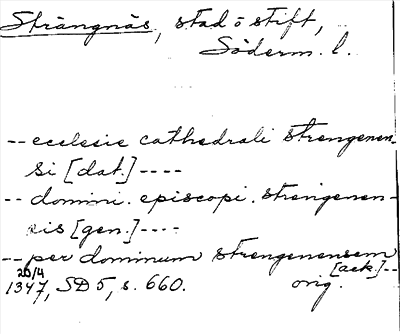 Strängnäs, stad o stift,
Söderm. l.
-- ecclesie cathedrali strengenen-
si [dat.] ----
-- domini . episcopi . strengenen-
sis [gen.] ----
-- per dominum strengenensem
[ack.] --
20/4
1347, SD 5, s. 660. orig.